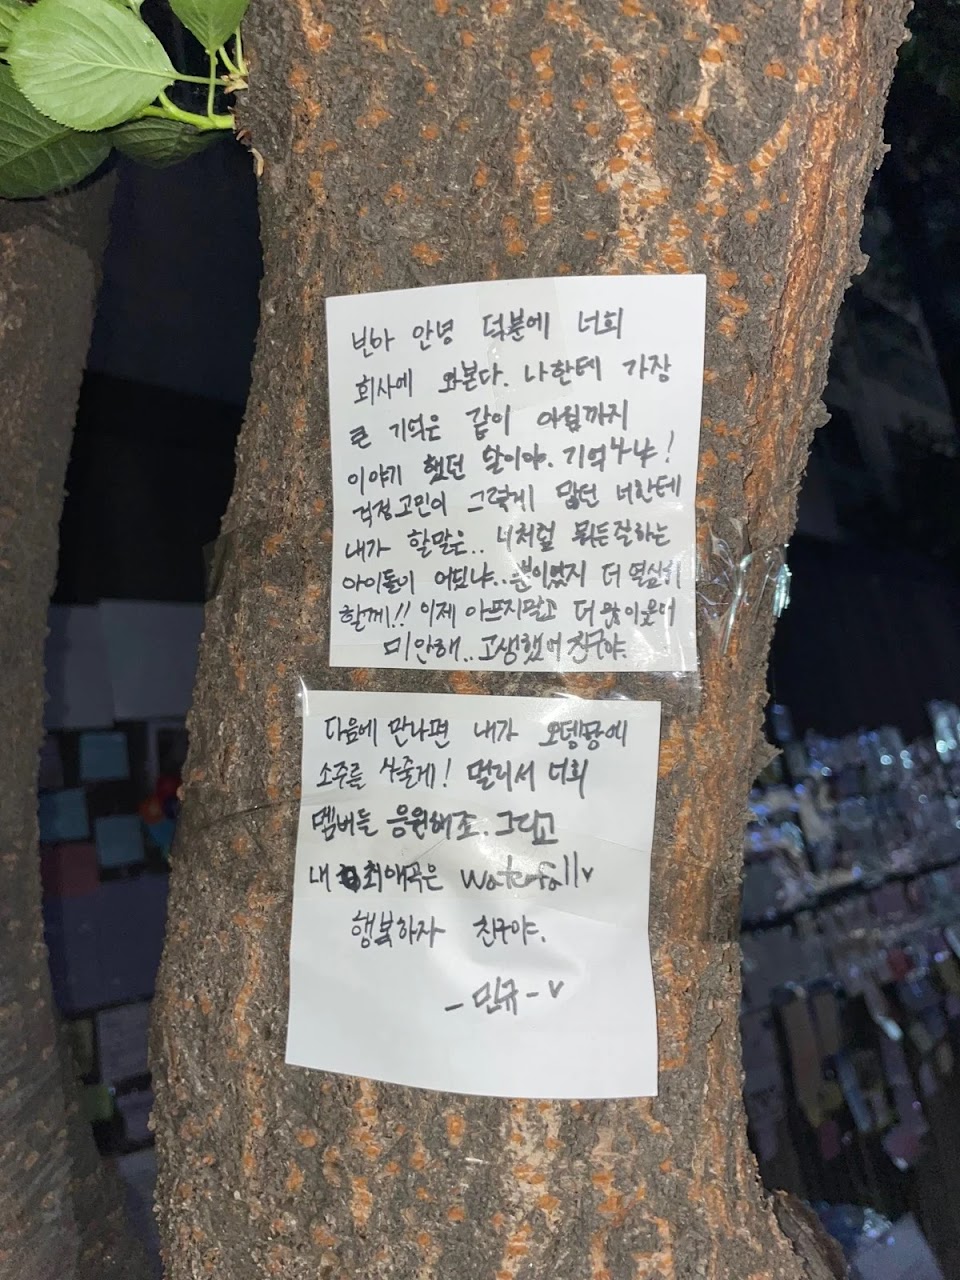 빈아 안녕 덕분에 너희
회사에 와본다. 나한테 가장
큰 기억은 같이 아침까지
이야기 했던 날이야. 기억나냐!
걱정고민이 그렇게 많던 너한테
내가 할말은.. 너처럼 뭐든잘하는
아이돌이 어딨냐.. 뿐이었지 더 열심히
할께!! 이제 아프지말고 더 많이웃어
미안해.. 고생했어 친구야.
다음에 만나면 내가 오뎅탕에
소주를 사줄게! 멀리서 너희
멤버들 응원해죠. 그리고
내 최애곡은 waterfall♥
행복하자 친구야.
- 민규 - ♥